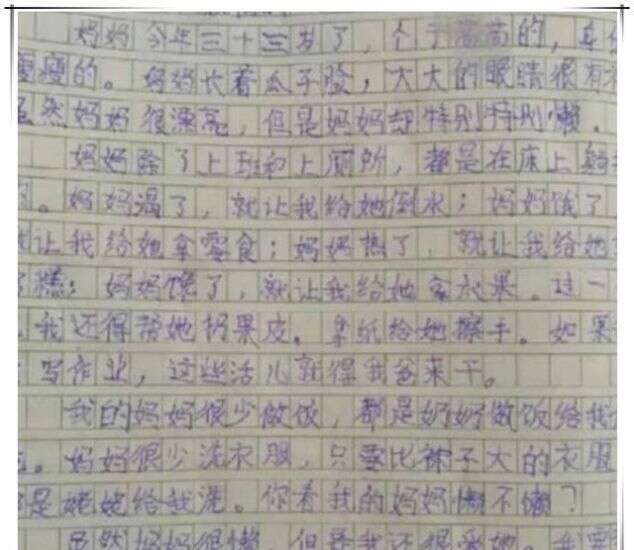 妈妈今年三十三岁了，个子高高的，
瘦瘦的。妈妈长着瓜子脸，大大的眼睛很有
虽然妈妈很漂亮，但是妈妈却特别特别懒。
妈妈除了上班和上厕所，都是在床上躺
。妈妈渴了，就让我给她倒水；妈妈饿了
就让我给她拿零食；妈妈热了，就让我给她
糕；妈妈馋了，就让我给她拿水果。过一
，我还得帮她扔果皮。拿纸给她擦手。如果
写作业，这些活儿就得我爸来干。
我的妈妈很少做饭，都是奶奶做饭给我
。妈妈很少洗衣服，只要比袜子大的衣服
是姥姥给我洗。你看我的妈妈懒不懒？
虽然妈妈很懒，但是我还很爱她。我